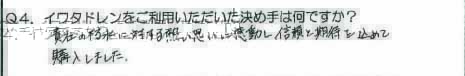 Q4. イワタドレンをご利用いただいた決め手は何ですか？
貴社の防水に対する熱い思いに感動し信頼と期待を込めて
購入しました.